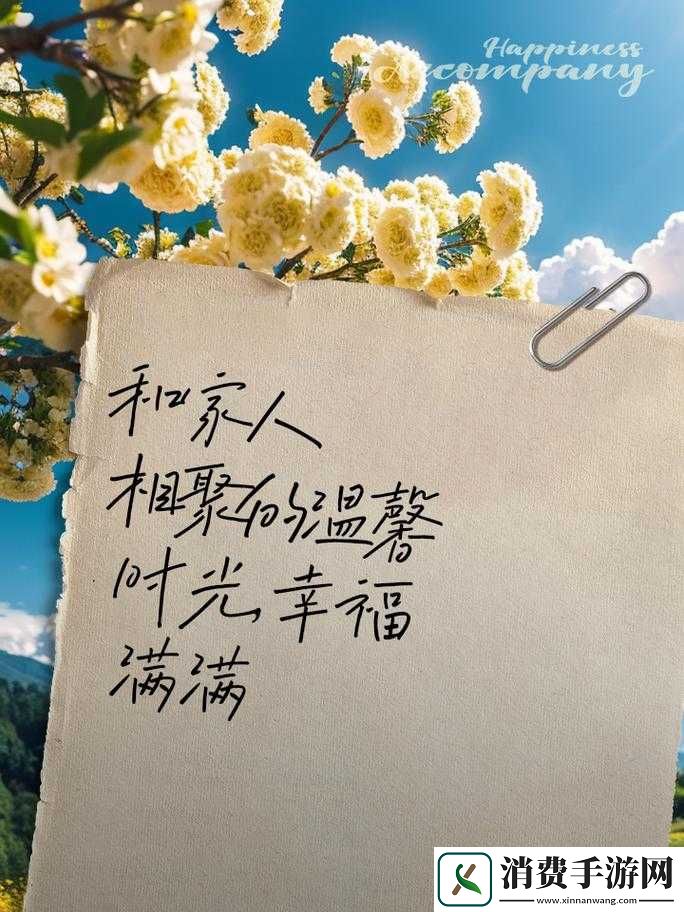 Happiness
Accompany
和家人
相聚的温馨
时光,幸福
满满
消费手游网
www.xinnanwang.com